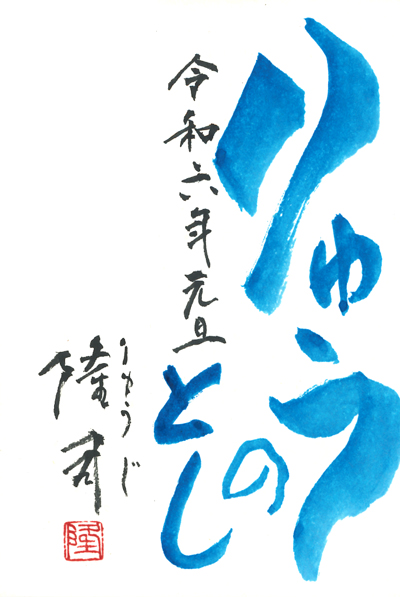 りゅう
の
とし
令和六年元旦
りゅうじ
隆
隆